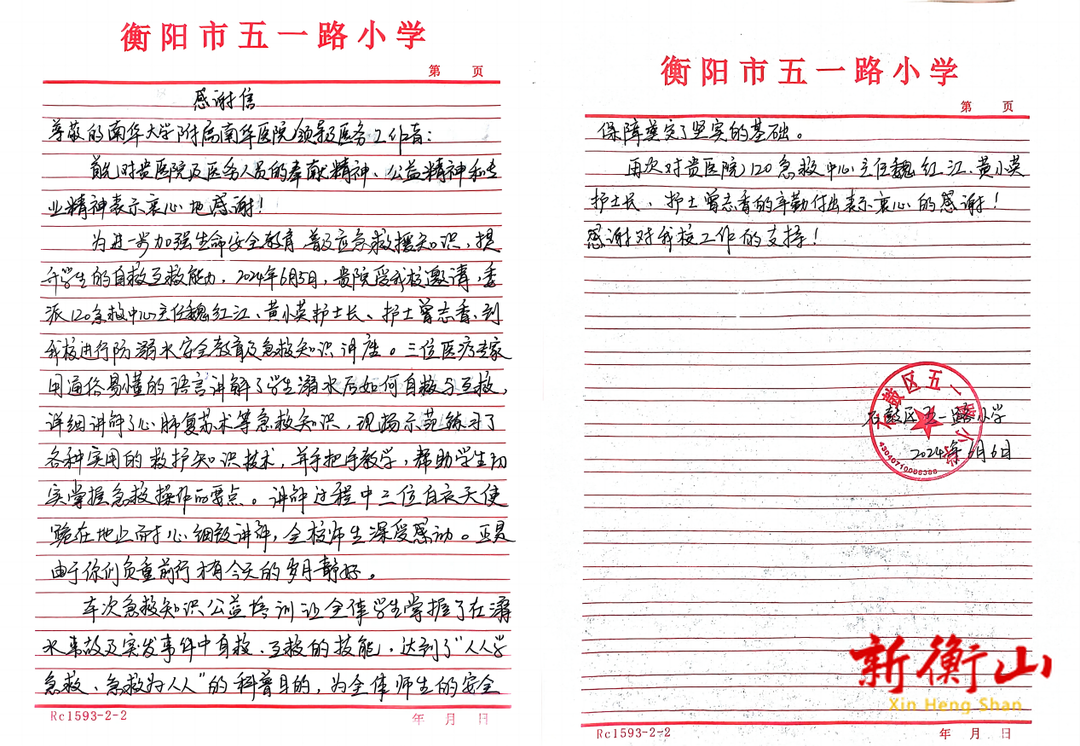 衡阳市五一路小学
第 页
感谢信
尊敬的南华大学附属南华医院领导及医务工作者:
首先对贵医院及医务人员的奉献精神、公益精神和专
业精神表示衷心地感谢!
为进一步加强生命安全教育普及应急救援知识,提
升学生的自救互救能力,2024年6月5日,贵院受我校邀请,委
派120急救中心主任魏红江、黄小英护士长、护士曾志香,到
我校进行防溺水安全教育及急救知识讲座。三位医疗专家
用通俗易懂的语言讲解了学生溺水后如何自救与互救,
详细讲解了心肺复苏术等急救知识,现场示范练习了
各种实用的救护知识技术,并手把手教学,帮助学生切
实掌握急救操作的要点。讲解过程中三位白衣天使
跪在地上耐心细致讲解,全校师生深受感动。正是
由于你们负重前行才有今天的岁月静好。
本次急救知识公益培训让全体学生掌握了在溺
水事故及突发事件中自救、互救的技能,达到了“人人学
急救、急救为人人”的科普目的,为全体师生的安全
Rc1593-2-2
年 月 日
衡阳市五一路小学
第 页
保障奠定了坚实的基础。
再次对贵医院120急救中心主任魏红江、黄小英
护士长、护士曾志香的辛勤付出表示衷心的感谢!
感谢对我校工作的支持!
石鼓区五一路小学
2024年6月6日
鼓区五一路小学
新衡山
Xin Heng Shan
Rc1593-2-2
年 月 日